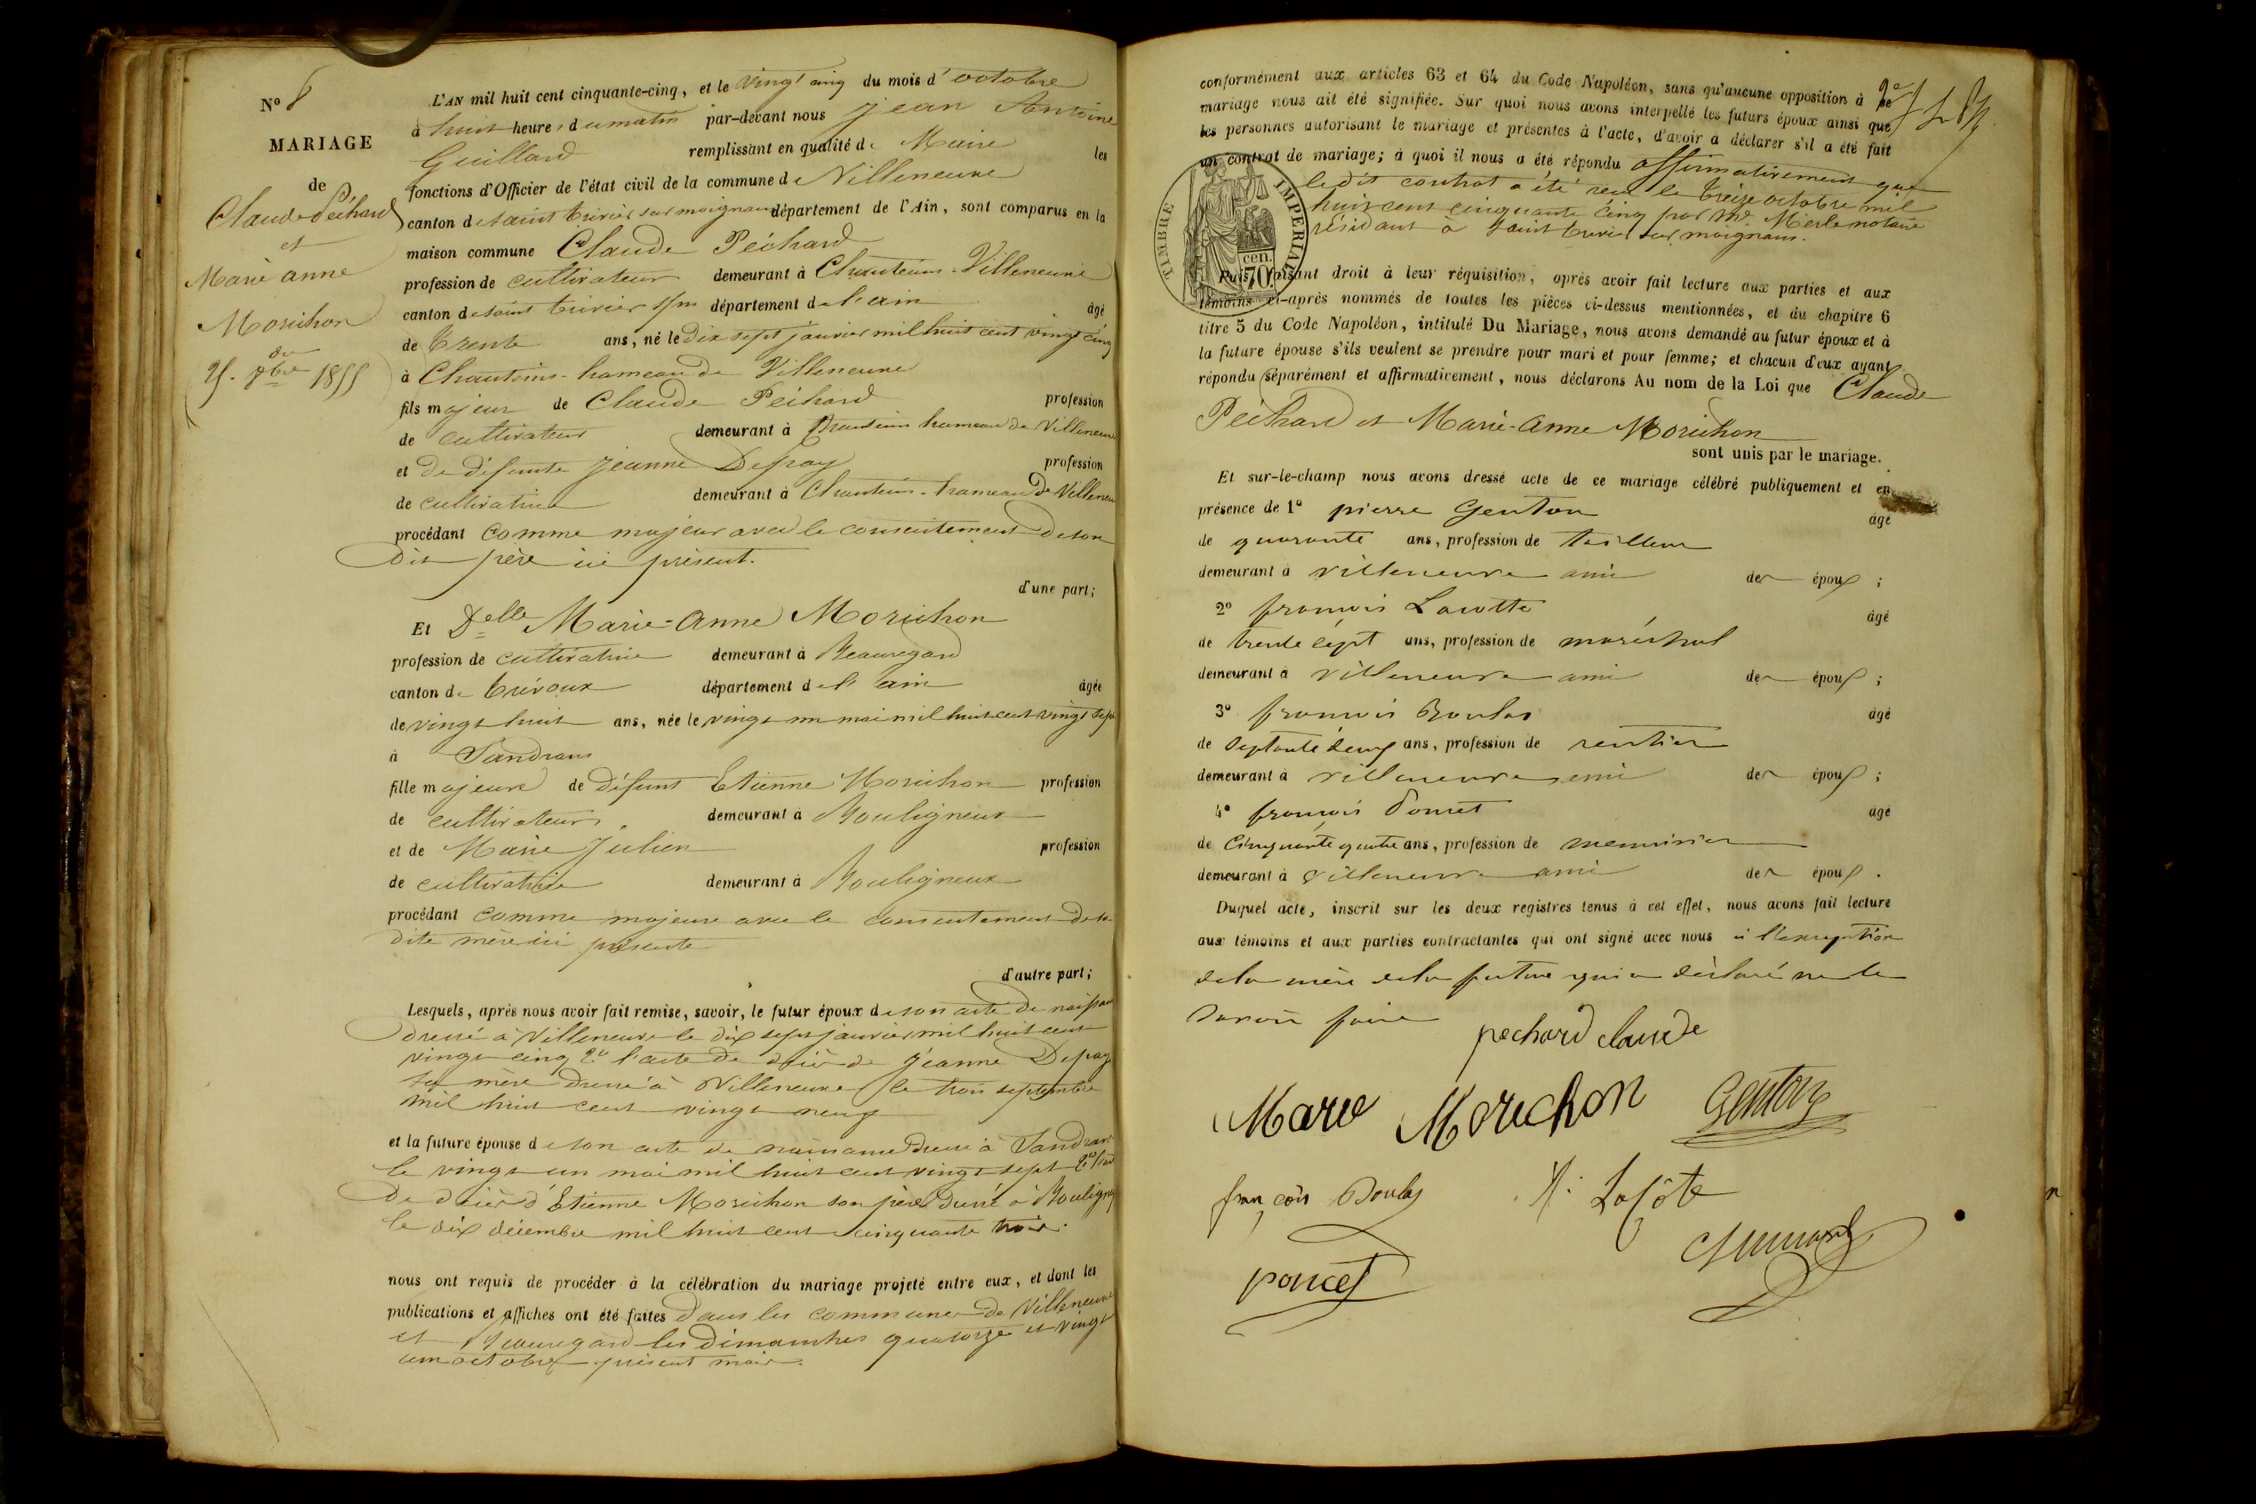 N° 8
MARIAGE
de
Claude Péchard
et
Marie anne
Morichon
25. 8bre 1855
L'AN mil huit cent cinquante-cinq, et le vingt cinq du mois d'octobre
à huit heures du matin par-devant nous Jean Antoine
Guillard remplissant en qualité de Maire les
fonctions d'Officier de l'état civil de la commune de Villeneuve
canton de saint trivier sur moignans département de l'Ain, sont comparus en la
maison commune Claude Péchard
profession de cultivateur demeurant à Chanteins-Villeneuve
canton de saint trivier s/m département de l'ain âgé
de trente ans, né le dix sept janvier mil huit cent vingt cinq
à Chanteins-hameau de Villeneuve
fils majeur de Claude Péchard profession
de cultivateur demeurant à Chanteins hameau de Villeneuve
et de défunte Jeanne Depay profession
de cultivatrice demeurant à Chanteins-hameau de Villeneu
procédant comme majeur avec le consentement de son
dit père ici présent.
d'une part;
Et Delle Marie-Anne Morichon
profession de cultivatrice demeurant à Beauregard
canton de trévoux département de l'ain âgée
de vingt huit ans, née le vingt un mai mil huit cent vingt sept
à Sandrans
fille majeure de défunt Etienne Morichon profession
de cultivateur demeurant à Bouligneux
et de Marie Julien profession
de cultivatrice demeurant à Bouligneux
procédant comme majeure avec le consentement de sa
dite mère ici présente
d'autre part;
Lesquels, après nous avoir fait remise, savoir, le futur époux de son acte de naissan
dressé à Villeneuve le dix sept janvier mil huit cent
vingt cinq 2° l'acte de décès de Jeanne Depay
sa mère dressé à Villeneuve le trois septembre
mil huit cent vingt neuf
et la future épouse de son acte de naissance dressé à Sandrans
le vingt un mai mil huit cent vingt sept 2°
de décès d'Etienne Morichon son père dressé à Bouligneux
le dix décembre mil huit cent cinquante trois.
nous ont requis de procéder à la célébration du mariage projeté entre eux, et dont les
publications et affiches ont été faites dans les communes de Villeneuve
et Beauregard les Dimanches quatorze et vingt
un octobre présent mois.
conformément aux articles 63 et 64 du Code Napoléon, sans qu'aucune opposition à ce
mariage nous ait été signifiée. Sur quoi nous avons interpellé les futurs époux ainsi que
les personnes autorisant le mariage et présentes à l'acte, d'avoir à déclarer s'il a été fait
un contrat de mariage; à quoi il nous a été répondu affirmativement que
ledit contrat a été reçu le treize octobre mil
huit cent cinquante cinq par Me Merle notaire
résidant à saint trivier sur moignans.
TIMBRE IMPERIAL
70 cen.
Puis, faisant droit à leur réquisition, après avoir fait lecture aux parties et aux
témoins ci-après nommés de toutes les pièces ci-dessus mentionnées, et du chapitre 6
titre 5 du Code Napoléon, intitulé Du Mariage, nous avons demandé au futur époux et à
la future épouse s'ils veulent se prendre pour mari et pour femme; et chacun d'eux ayant
répondu séparément et affirmativement, nous déclarons Au nom de la Loi que Claude
Péchard et Marie-Anne Morichon
sont unis par le mariage.
Et sur-le-champ nous avons dressé acte de ce mariage célébré publiquement et en
présence de 1° pierre Genton âgé
de quarante ans, profession de tailleur
demeurant à villeneuve ami des époux;
2° françois Lacotte âgé
de trente sept ans, profession de maréchal
demeurant à villeneuve ami des époux;
3° françois Boulas âgé
de septante deux ans, profession de rentier
demeurant à villeneuve ami des époux;
4° françois Poncet âgé
de Cinquante quatre ans, profession de menuisier
demeurant à villeneuve ami des époux.
Duquel acte, inscrit sur les deux registres tenus à cet effet, nous avons fait lecture
aux témoins et aux parties contractantes qui ont signé avec nous à l'exception
de la mère de la future qui a déclaré ne le
savoir faire
pechard claude
Marie Morichon Genton
françois Boulas
f. Lacôte
poncet
Guillard